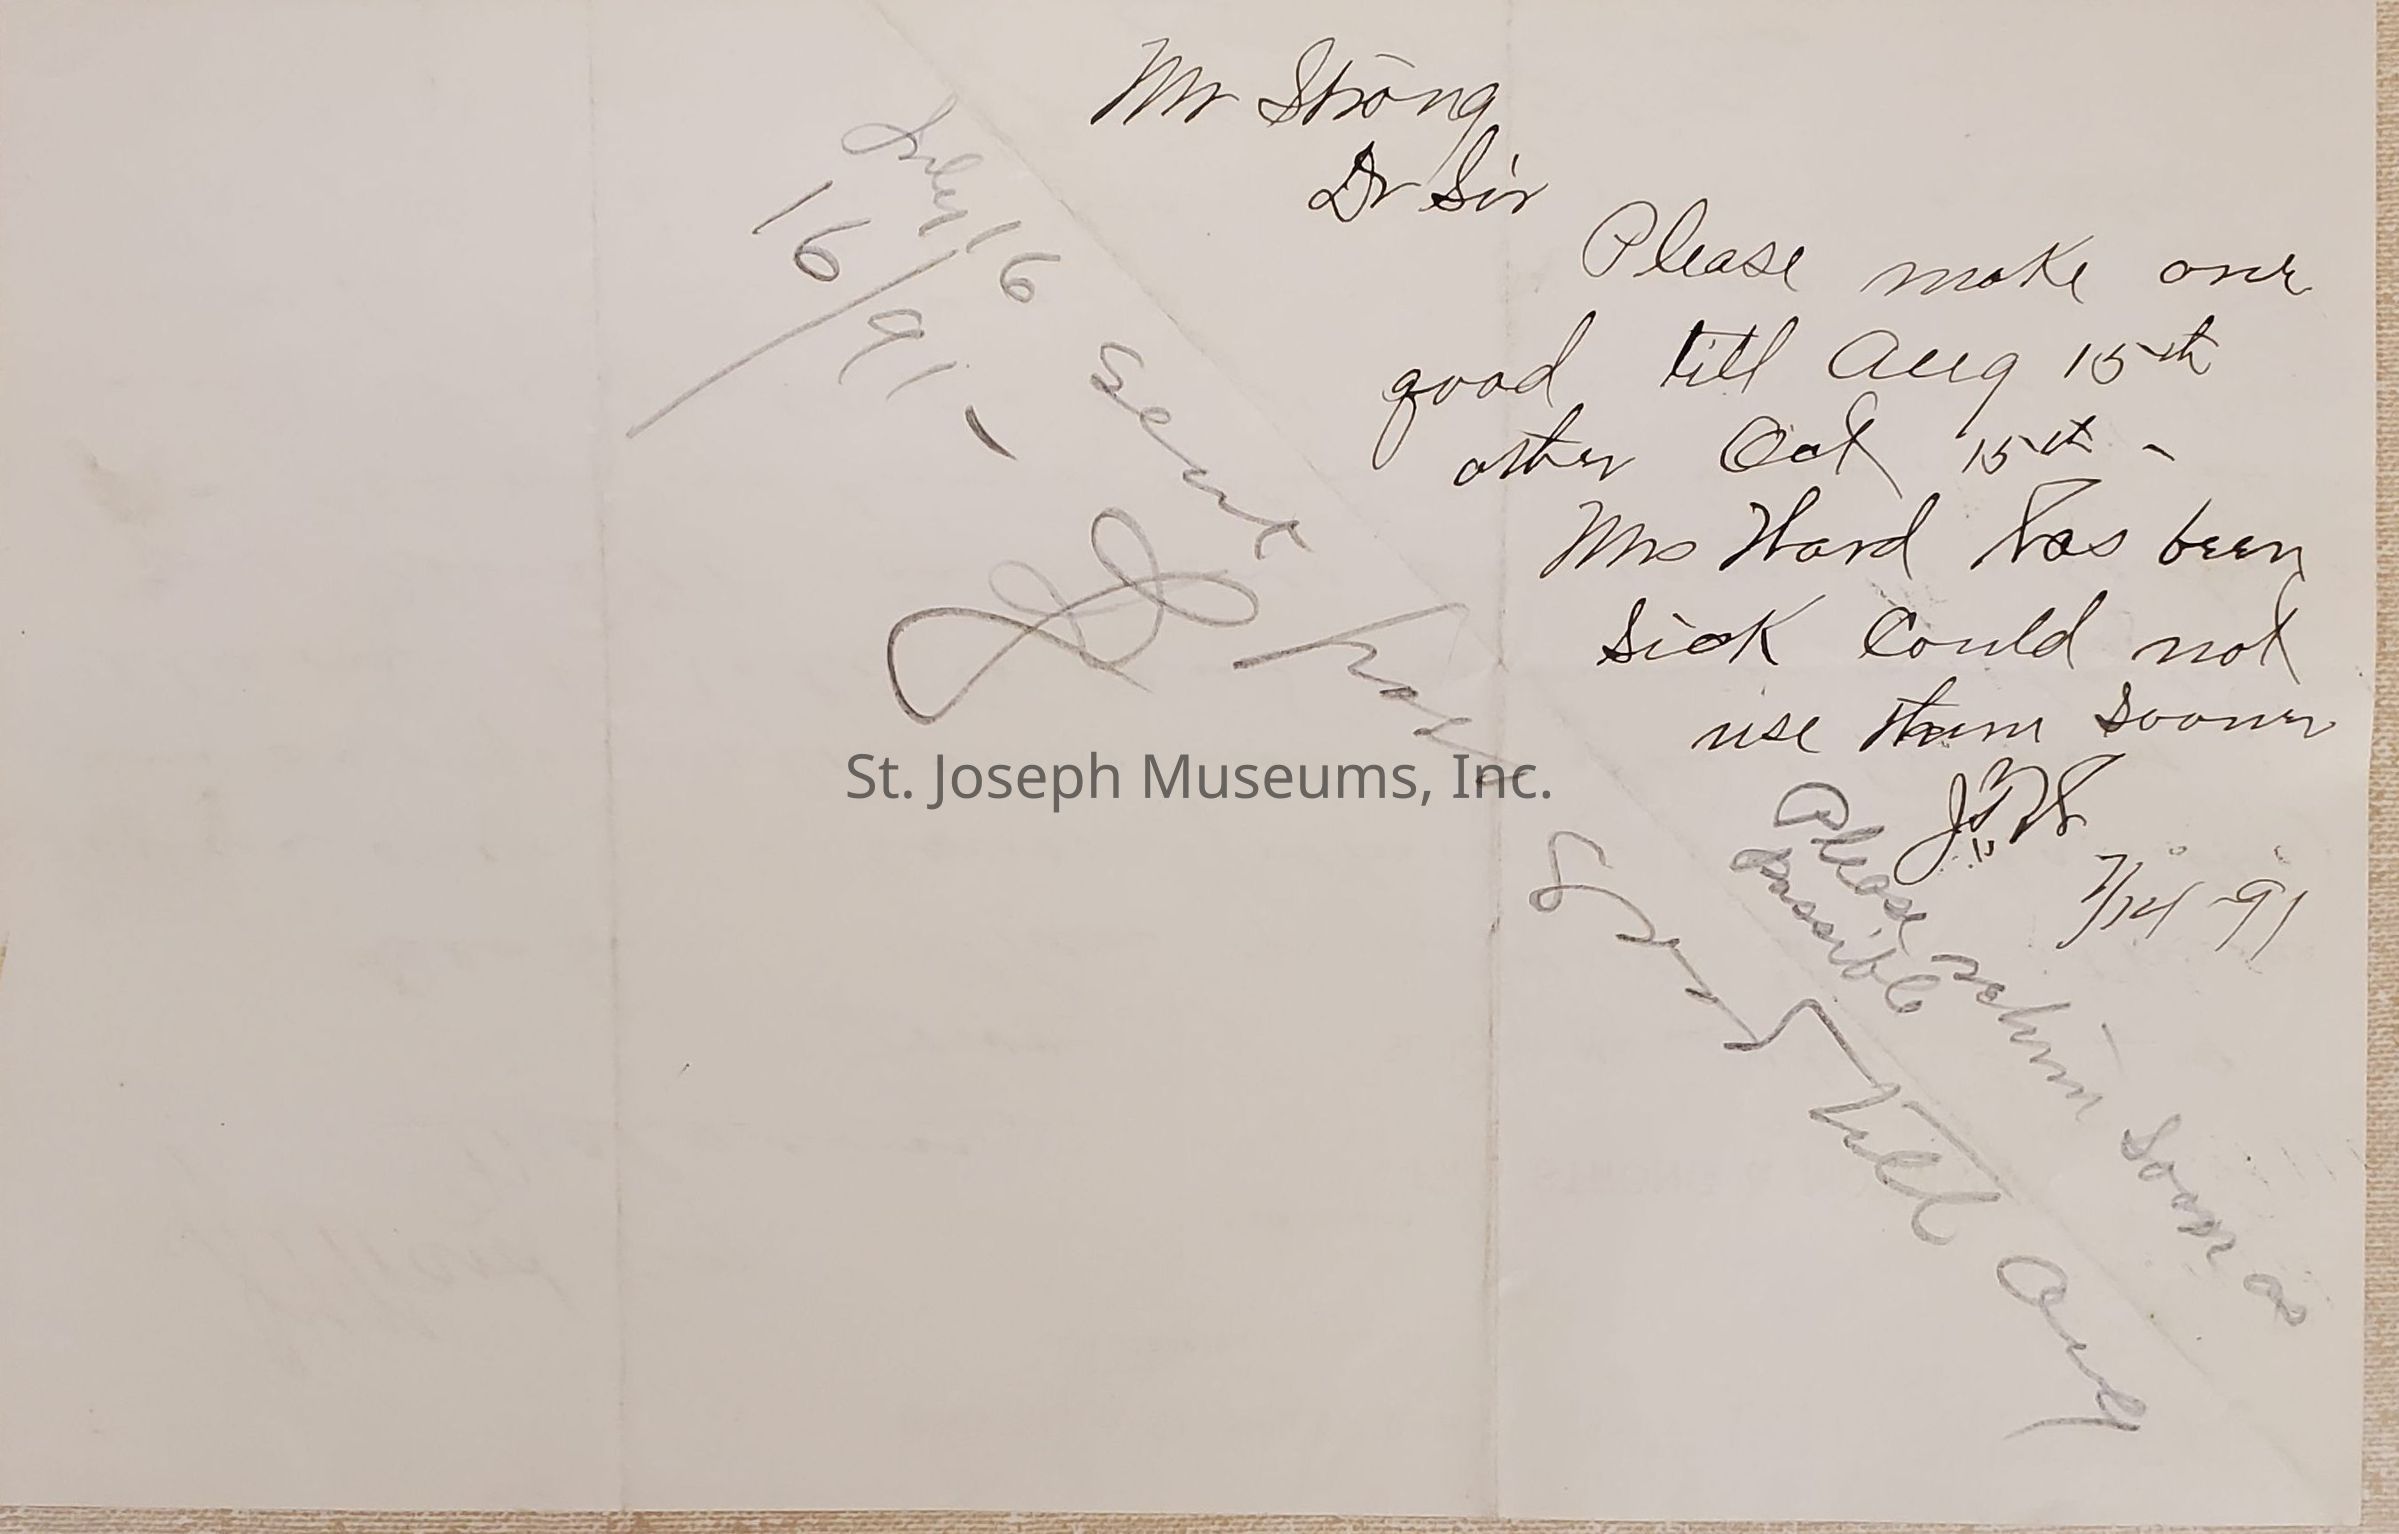 Mr Strong
Dr Sir
Please make one
good till Aug 15th
other Oct 15th -
Mrs Ward has been
sick could not
use them sooner
7/14 - 91
Please
possible
soon as
July 16
16/91 -
Sent
till Aug
St. Joseph Museums, Inc.